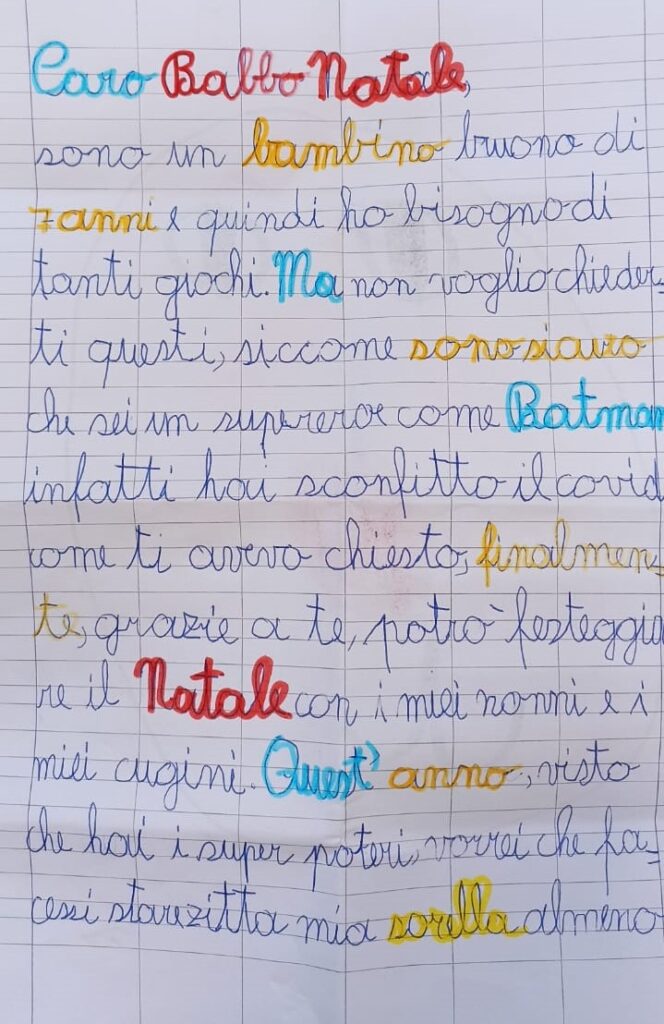 Caro Babbo Natale,
sono un bambino buono di
7 anni e quindi ho bisogno di
tanti giochi. Ma non voglio chieder-
ti questi, siccome sono sicuro
che sei un supereroe come Batman
infatti hai sconfitto il covid
come ti avevo chiesto, finalmen-
te, grazie a te, potrò festeggia
re il Natale con i miei nonni e i
miei cugini. Quest' anno, visto
che hai i super poteri, vorrei che fa-
cessi stare zitta mia sorella almeno